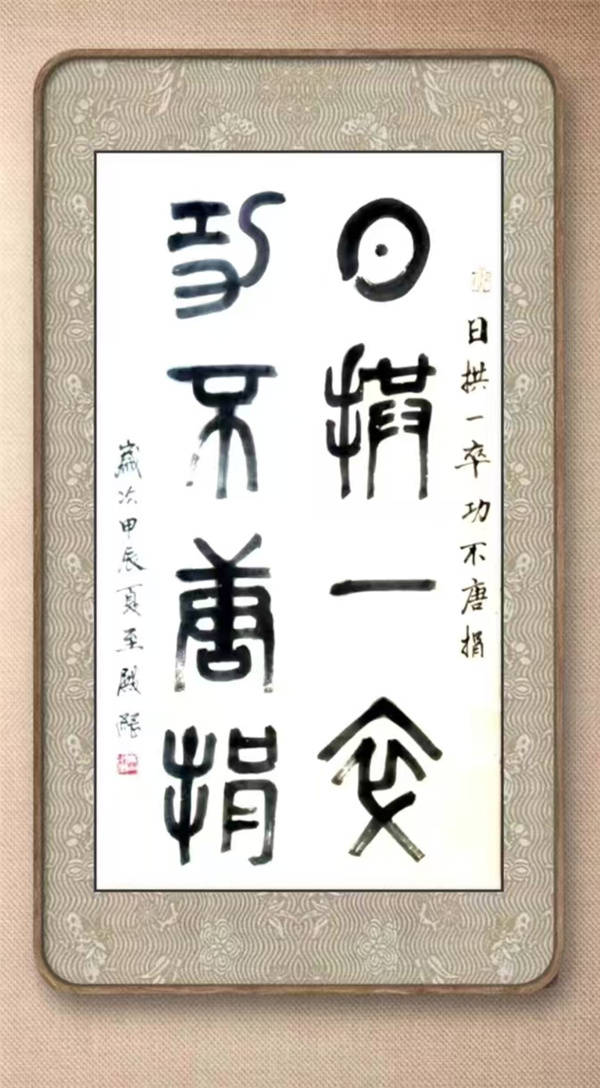 日拱一卒功不唐捐
日拱一卒
功不唐捐
歲次甲辰夏至